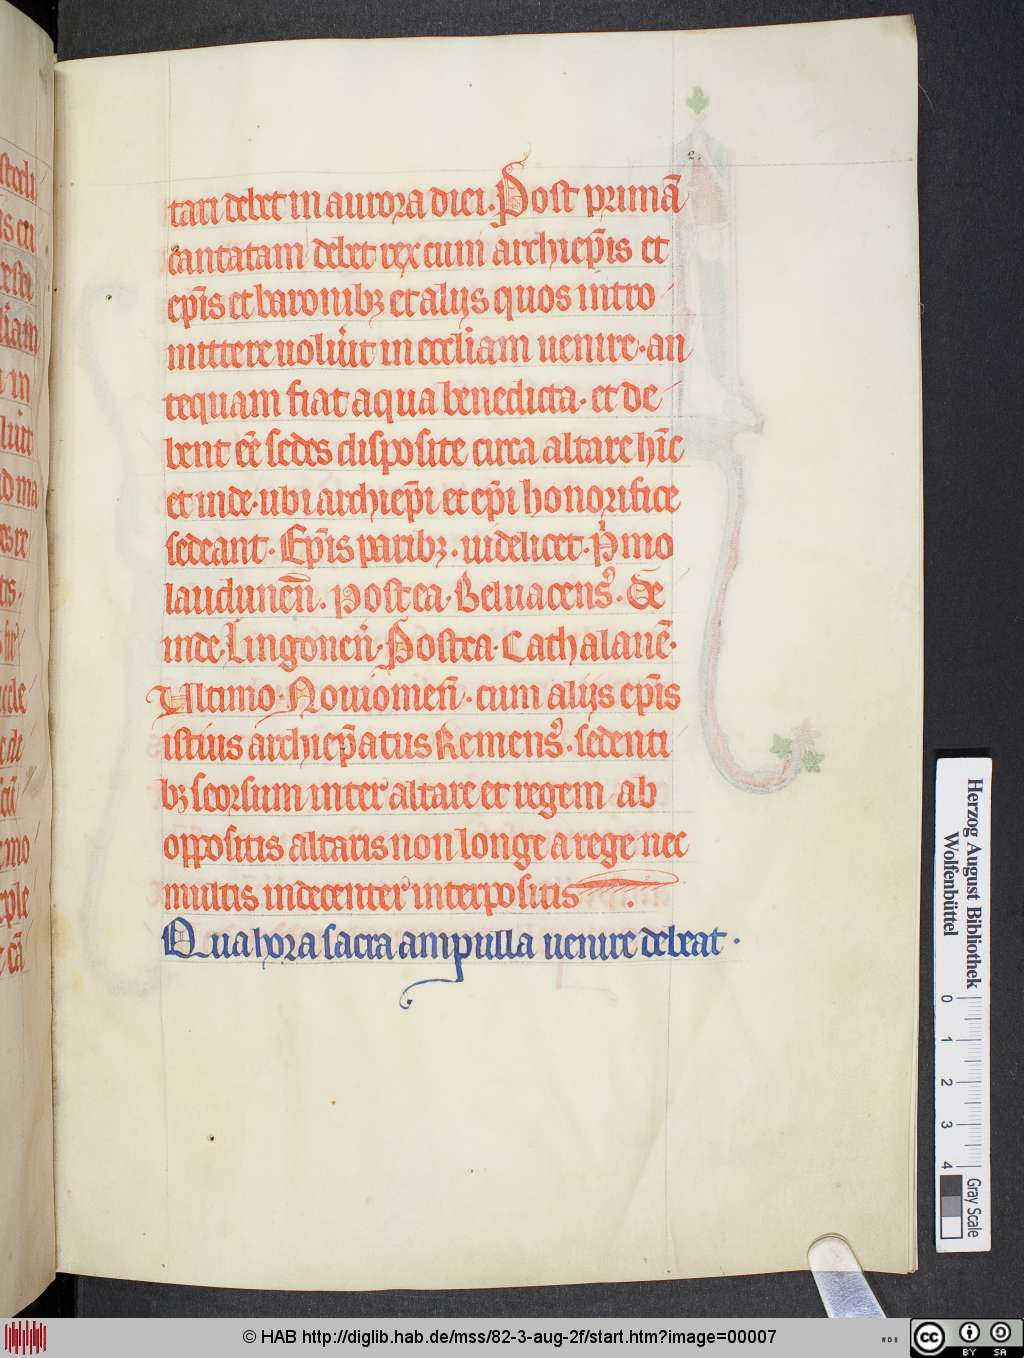 2.
tari debet in aurora diei. Post primā
cantatam debet rex cum archiep̄is et
ep̄is et baronibꝫ et alijs quos intro
mittere voluīt in eccl̄iam uenire. an
tequam fiat aqua benedicta. et de
bent eē sedes disposite circa altare hīc
et inde. ubi archiep̄i et ep̄i honorifice
sedeant. Ep̄is paribꝫ. uidelicet. P̄mo
laudunen̄. postea. Beluacens̾. Dē
inde. Lingonen̄. Postea. Cathalanē.
Ultimo. Nouiomen̄. cum alijs ep̄is
istius archiep̄atus Remens̾. sedenti
bꝫ seorsum inter altare et regem ab
oppositis altaris non longe a rege nec
multis indecenter interpositis.
Qua hora sacra ampulla uenire debeat.
Herzog August Bibliothek
Wolfenbüttel
0 1 2 3 4
Gray Scale
© HAB http://diglib.hab.de/mss/82-3-aug-2f/start.htm?image=00007
cc BY SA